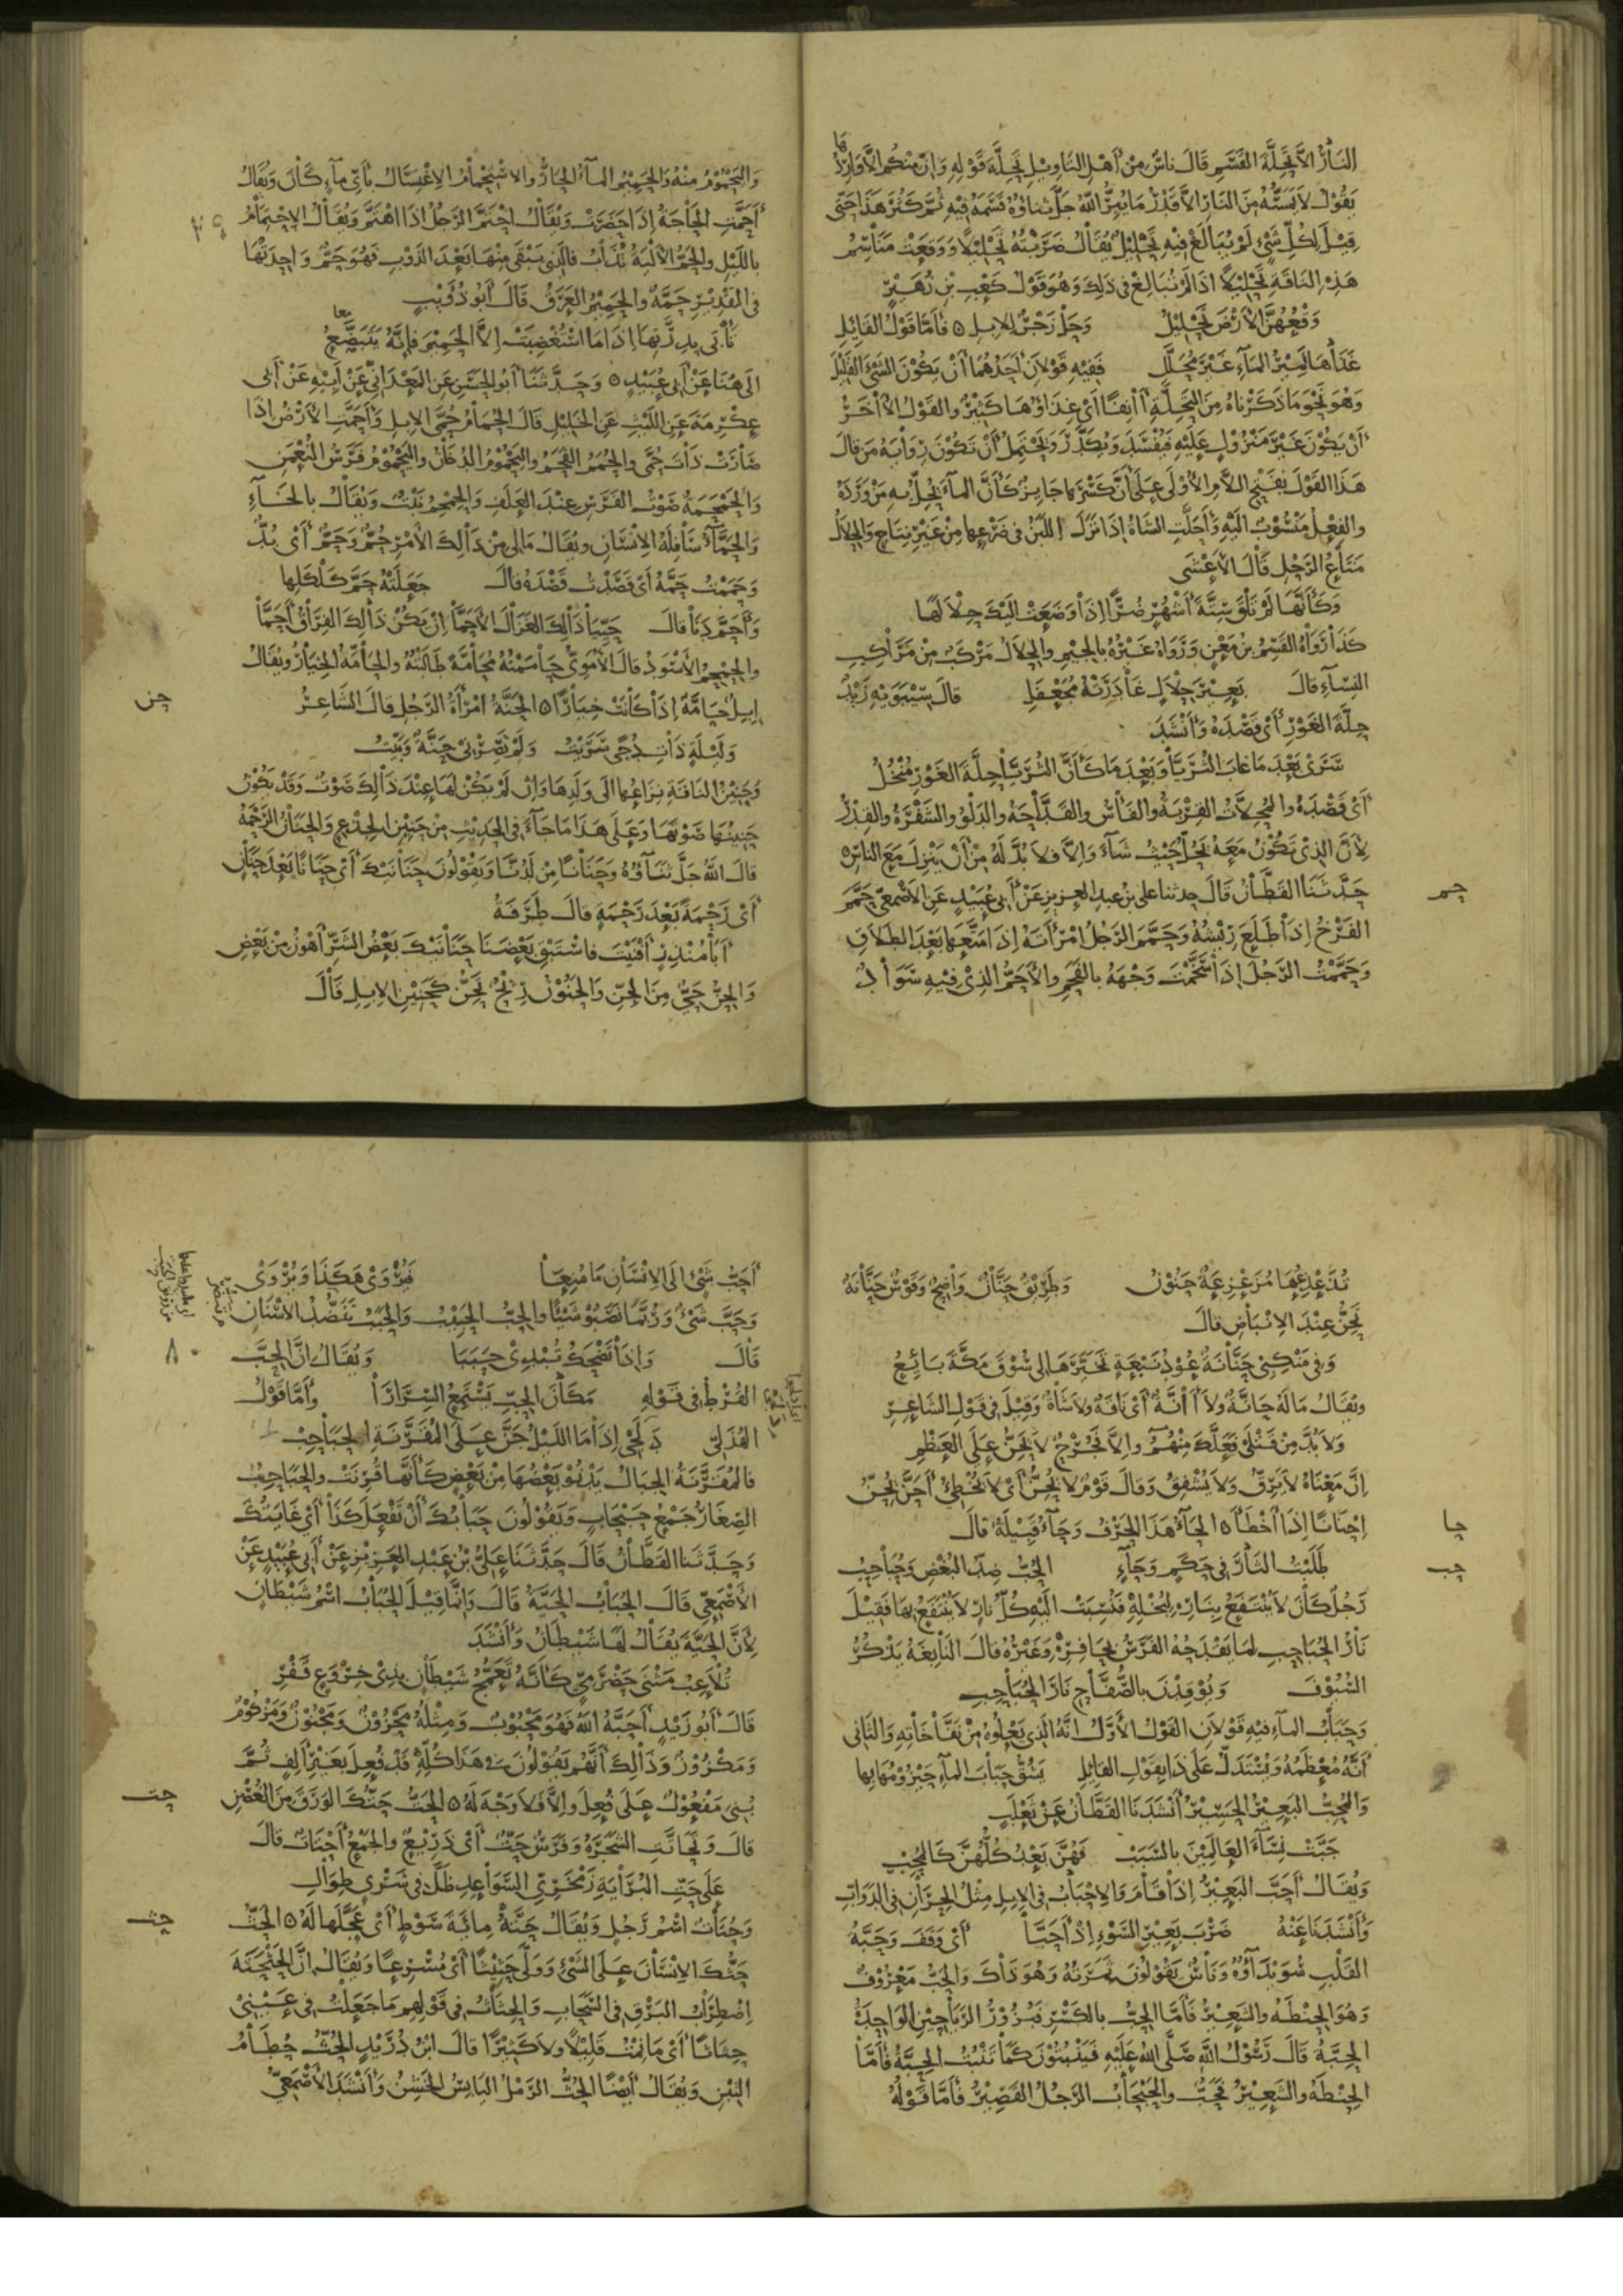 النار الا تحلة القسم قال ناس من اهل التاويل تحلة قوله وان منكم الا واردها
يقول لا يمسه من النار الا قدر ما يبر الله جل ثناؤه قسمه فيه ثم كثر هذا حتى
قيل لكل شيء لم يبالغ فيه تحليل يقال ضربته تحليلا ووقعت مناسم
هذه الناقة تحليلا اذا لم تبالغ في ذلك وهو قول كعب بن زهير
وقعهن الارض تحليل وحل زجر للابل ٥ فاما قول القائل
غذاها نمير الماء غير محلل ففيه قولان احدهما ان يكون الشيء القليل
وهو نحو ما ذكرناه من التحلة اانفا اي غذاؤها كثير والقول الاخر
ان يكون غير منزول عليه فيفسد ويكدر ويحتمل ان تكون رواية من قال
هذا القول بفتح اللام الاولى على ان كسرها جايز كأن الماء يحل به من ورده
والفعل منسوب اليه وأحلت الشاة اذا نزل اللبن في ضرعها من غير نتاج والحلال
متاع الرحل قال الاعشى
وكأنها لم تلق ستة اشهر ضرا اذا وضعت اليك حلالها
كذا رواه القسم بن معن ورواه غيره بالجيم والحلال مركب من مراكب
النساء قال بعير حلال غادرته مجعفل قال سيبويه زيد
حلة الغور أي قصده وأنشد
سرى بعد ما غاب الثريا وبعد ما كأن الثريا حلة الغور منخل
أي قصده والمحلات القربة والفأس والقداحة والدلو والشفرة والقدر
لأن الذي تكون معه يحل حيث شاء والا فلا بد له من أن ينزل مع الناس ٥
حم
حدثنا القطان قال حدثنا علي بن عبد العزيز عن أبي عبيد عن الاصمعي حمم
الفرخ اذا طلع ريشه وحمم الرجل امرأته اذا متعها بعد الطلاق
وحممت الرجل اذا سخمت وجهه بالفحم والأحم الذي فيه سواد
واليحموم منه والحميم الماء الحار والاستحمام الاغتسال بأي ماء كان ويقال
أحمت الحاجة اذا حضرت ويقال احتم الرجل اذا اهتم ويقال الاحتمام
بالليل والحم الألية تذاب فالذي يبقى منها بعد الذوب فهو حم واحدتها
في التقدير حمة والحميم العرق قال أبو ذويب
تأبى بدرتها اذا ما استغضبت الا الحميم فانه يتبضع
معا
الى هنا عن أبي عبيد ٥ وحدثنا أبو الحسن عن المعداني عن أبيه عن أبي
عكرمة عن الليث عن الخليل قال الحمام حمى الابل وأحمت الارض اذا
صارت ذات حمى والحمم الفحم واليحموم الدخان واليحموم فرس النعمن
والحمحمة صوت الفرس عند العلف والحمحم نبت ويقال بالخاء
والحماء سافلة الانسان ويقال مالي من ذالك الأمر حم وحم أي بد
وحممت حمه أي قصدت قصده قال جعلته حم كلكلها
وأحم دنا قال حييا ذالك الغزال الأحما ان يكن ذالك الفراق أجما
والحمحم الأسود قال الأموي حاممته محامة طالبته والحامة الخيار ويقال
حن
ابل حامة اذا كانت خيارا ٥ الحنة امرأة الرجل قال الشاعر
وليلة ذات دجى سريت ولم تضرني حنة وبيت
وحنين الناقة نزاعها الى ولدها وان لم يكن لها عند ذالك صوت وقد يكون
حنينها صوتها وعلى هذا ما جاء في الحديث من حنين الجذع والحنان الرحمة
قال الله جل ثناؤه وحنانا من لدنا ويقولون حنانيك أي حنانا بعد حنان
أي رحمة بعد رحمة قال طرفة
أبا منذر أفنيت فاستبق بعضنا حنانيك بعض الشر أهون من بعض
والحن حي من الجن والحنون ريح تحن كحنين الابل قال
تذعذعها مزعزعة حنون وطريق حنان واضح وقوس حنانة
تحن عند الانباض قال
وفي منكبي حنانة عود نبعة تخيرها الى سوق مكة بائع
ويقال ماله حانة ولا اانة أي ناقة ولا شاة وقيل في قول الشاعر
ولا بد من قتلى لعلك منهم والا فجرح لا يحن على العظم
ان معناه لا يرق ولا يشفق وقال قوم لا يحن أي لا يخطئ أحن يحن
حا
احنانا اذا أخطأ ٥ الحاء هذا الحرف وحاء قبيلة قال
حب
طلبت الثأر في حكم وحاء الحب ضد البغض وحباحب
رجل كان لا ينتفع بناره لبخله فنسبت اليه كل نار لا ينتفع بها فقيل
نار الحباحب لما يقدحه الفرس بحافره وغيره قال النابغة يذكر
السيوف ويوقدن بالصفاح نار الحباحب
وحباب الماء فيه قولان القول الأول انه الذي يعلوه من نفاخاته والثاني
أنه معظمه ويستدل على ذا بقول القائل يشق حباب الماء حيزومها بها
والمحب البعير الحسير أنشدنا القطان عن ثعلب
جبت نساء العالمين بالسبب فهن بعد كلهن كالمحب
ويقال أحب البعير اذا قام والاحباب في الابل مثل الحران في الدواب
وأنشدنا عنه ضرب بعير السوء اذ أحبا أي وقف وحبة
القلب سويداؤه وناس يقولون ثمرته وهو ذاك والحب معروف
وهو الحنطة والشعير فأما الحب بالكسر فبزور الرياحين الواحدة
الحبة قال رسول الله صلى الله عليه فينبتون كما تنبت الحبة فأما
الحنطة والشعير فحب والحبحاب الرجل القصير فأما قوله
أحب شيء الى الانسان ما منعا فيروى هكذا ويروى
وحب شيء وربما نصبوا شيئا والحب الحبيب والحبب تنضد الاسنان
٨٠
قال واذا تضحك تبدي حببا ويقال ان الحب
القرط في قوله مكان الحب يستمع السرارا وأما قول
الهذلي دلجي اذا ما الليل جن على المقرنة الحباحب
فالمقرنة الجبال يدنو بعضها من بعض كأنها قرنت والحباحب
الصغار جمع حبحاب ويقولون حبابك أن تفعل كذا أي غايتك
وحدثنا القطان قال حدثنا علي بن عبد العزيز عن أبي عبيد عن
الأصمعي قال الحباب الحية قال وانما قيل الحباب اسم شيطان
لأن الحية يقال لها شيطان وأنشد
تلاعب مثنى حضرمي كأنه تعمج شيطان بذي خروع قفر
قال أبو زيد أحبه الله فهو محبوب ومثله محزون ومجنون ومزكوم
ومكزوز وذالك أنهم يقولون في هذا كله قد فعل بغير ألف ثم
حت
بني مفعول على فعل والا فلا وجه له ٥ الحت حتك الورق من الغصن
قال وتحاتت الشجرة وفرس حت أي ذريع والجمع أحتات قال
على حت البراية زمخري السواعد ظل في شري طوال
حث
وحتات اسم رجل ويقال حته مائة سوط أي عجلها له ٥ الحث
حثك الانسان على الشيء وولى حثيثا أي مسرعا ويقال ان الحثحثة
اضطراب البرق في السحاب والحثاث في قولهم ما جعلت في عيني
حثاثا أي ما نمت قليلا ولا كثيرا قال ابن دريد الحث حطام
التبن ويقال أيضا الحث الرمل اليابس الخشن وأنشد الأصمعي